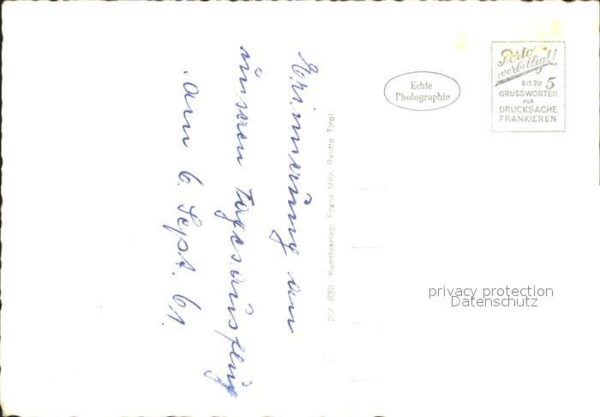 Erinnerung an
unseren Tagesausflug
am 6. Sept. 61.
Kunstverlag Franz Milz, Reutte Tirol
Echte
Photographie
Porto
verbilligt!
BIS ZU 5
GRUSSWORTEN
ALS
DRUCKSACHE
FRANKIEREN
privacy protection
Datenschutz